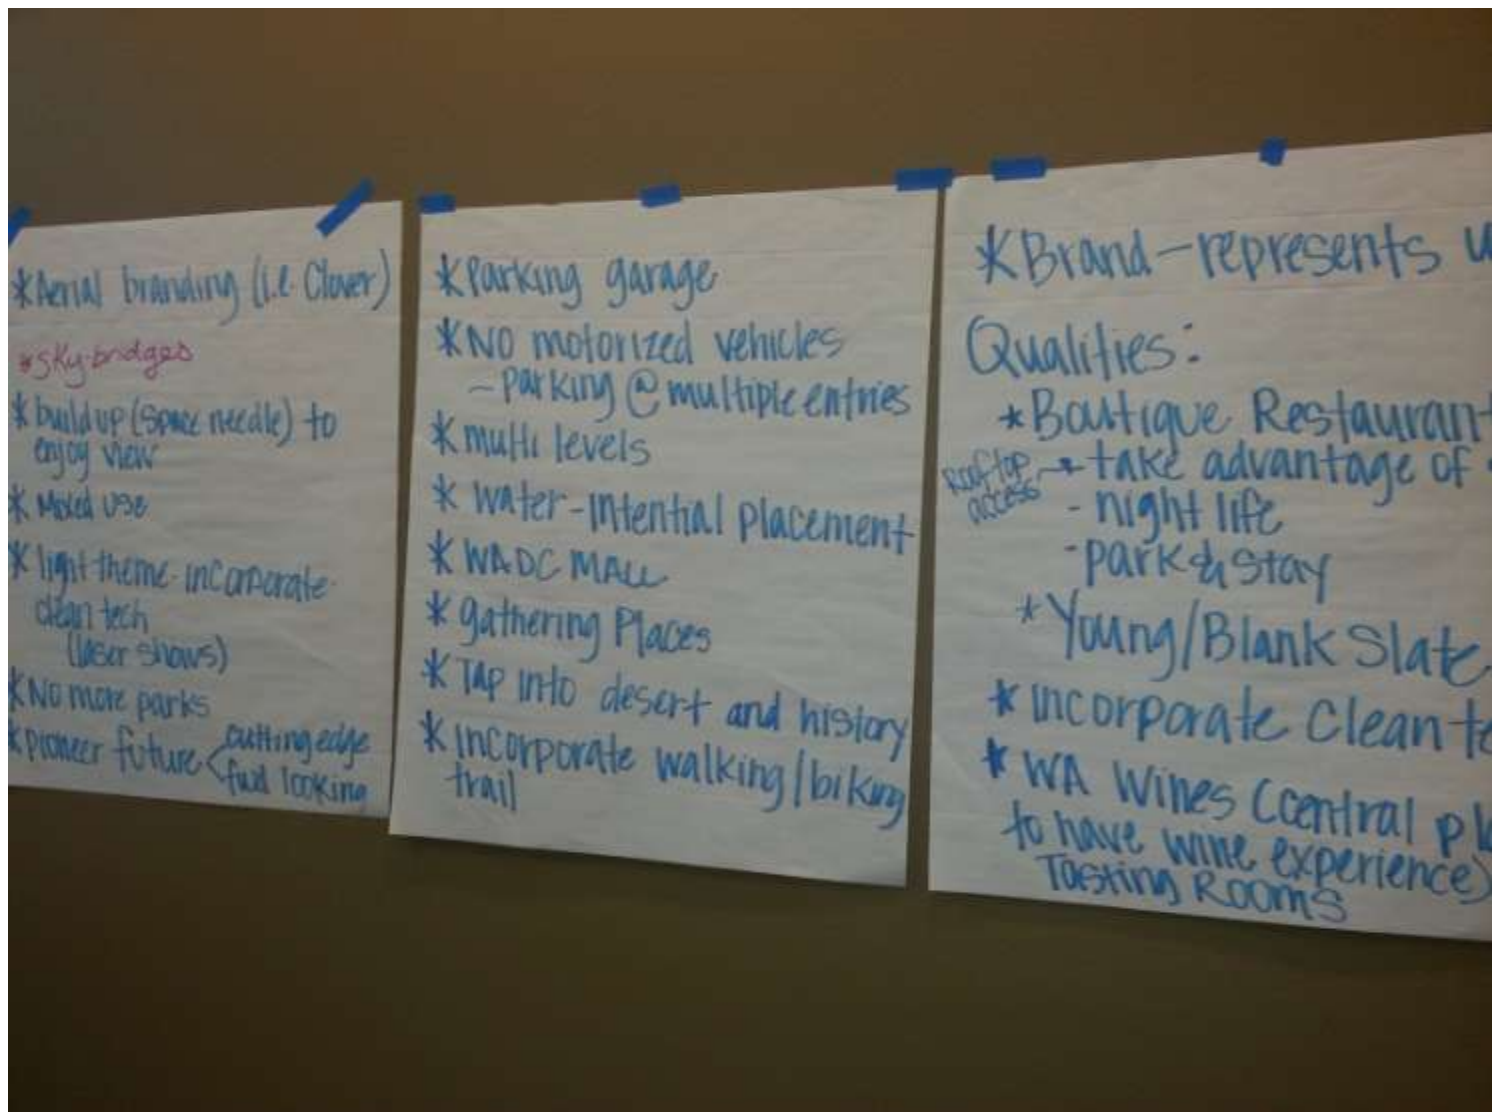 *Aerial branding (i.e. Clover)
*sky-bridges
*build up (space needle) to
enjoy view
*Mixed use
*light theme-incorporate
clean tech
(laser shows)
*No more parks
*pioneer future < cutting edge
fwd looking
*Parking garage
*NO motorized vehicles
- Parking @ multiple entries
*multi levels
*water-intential placement
*WADC MALL
*gathering Places
*TAP into desert and history
*incorporate walking/biking
trail
*Brand-represents
Qualities:
*Boutique Restaurant
Rooftop access → take advantage of
- night life
- park & stay
*Young/Blank Slate
*incorporate clean
*WA Wines (central
to have wine experience)
Tasting Rooms